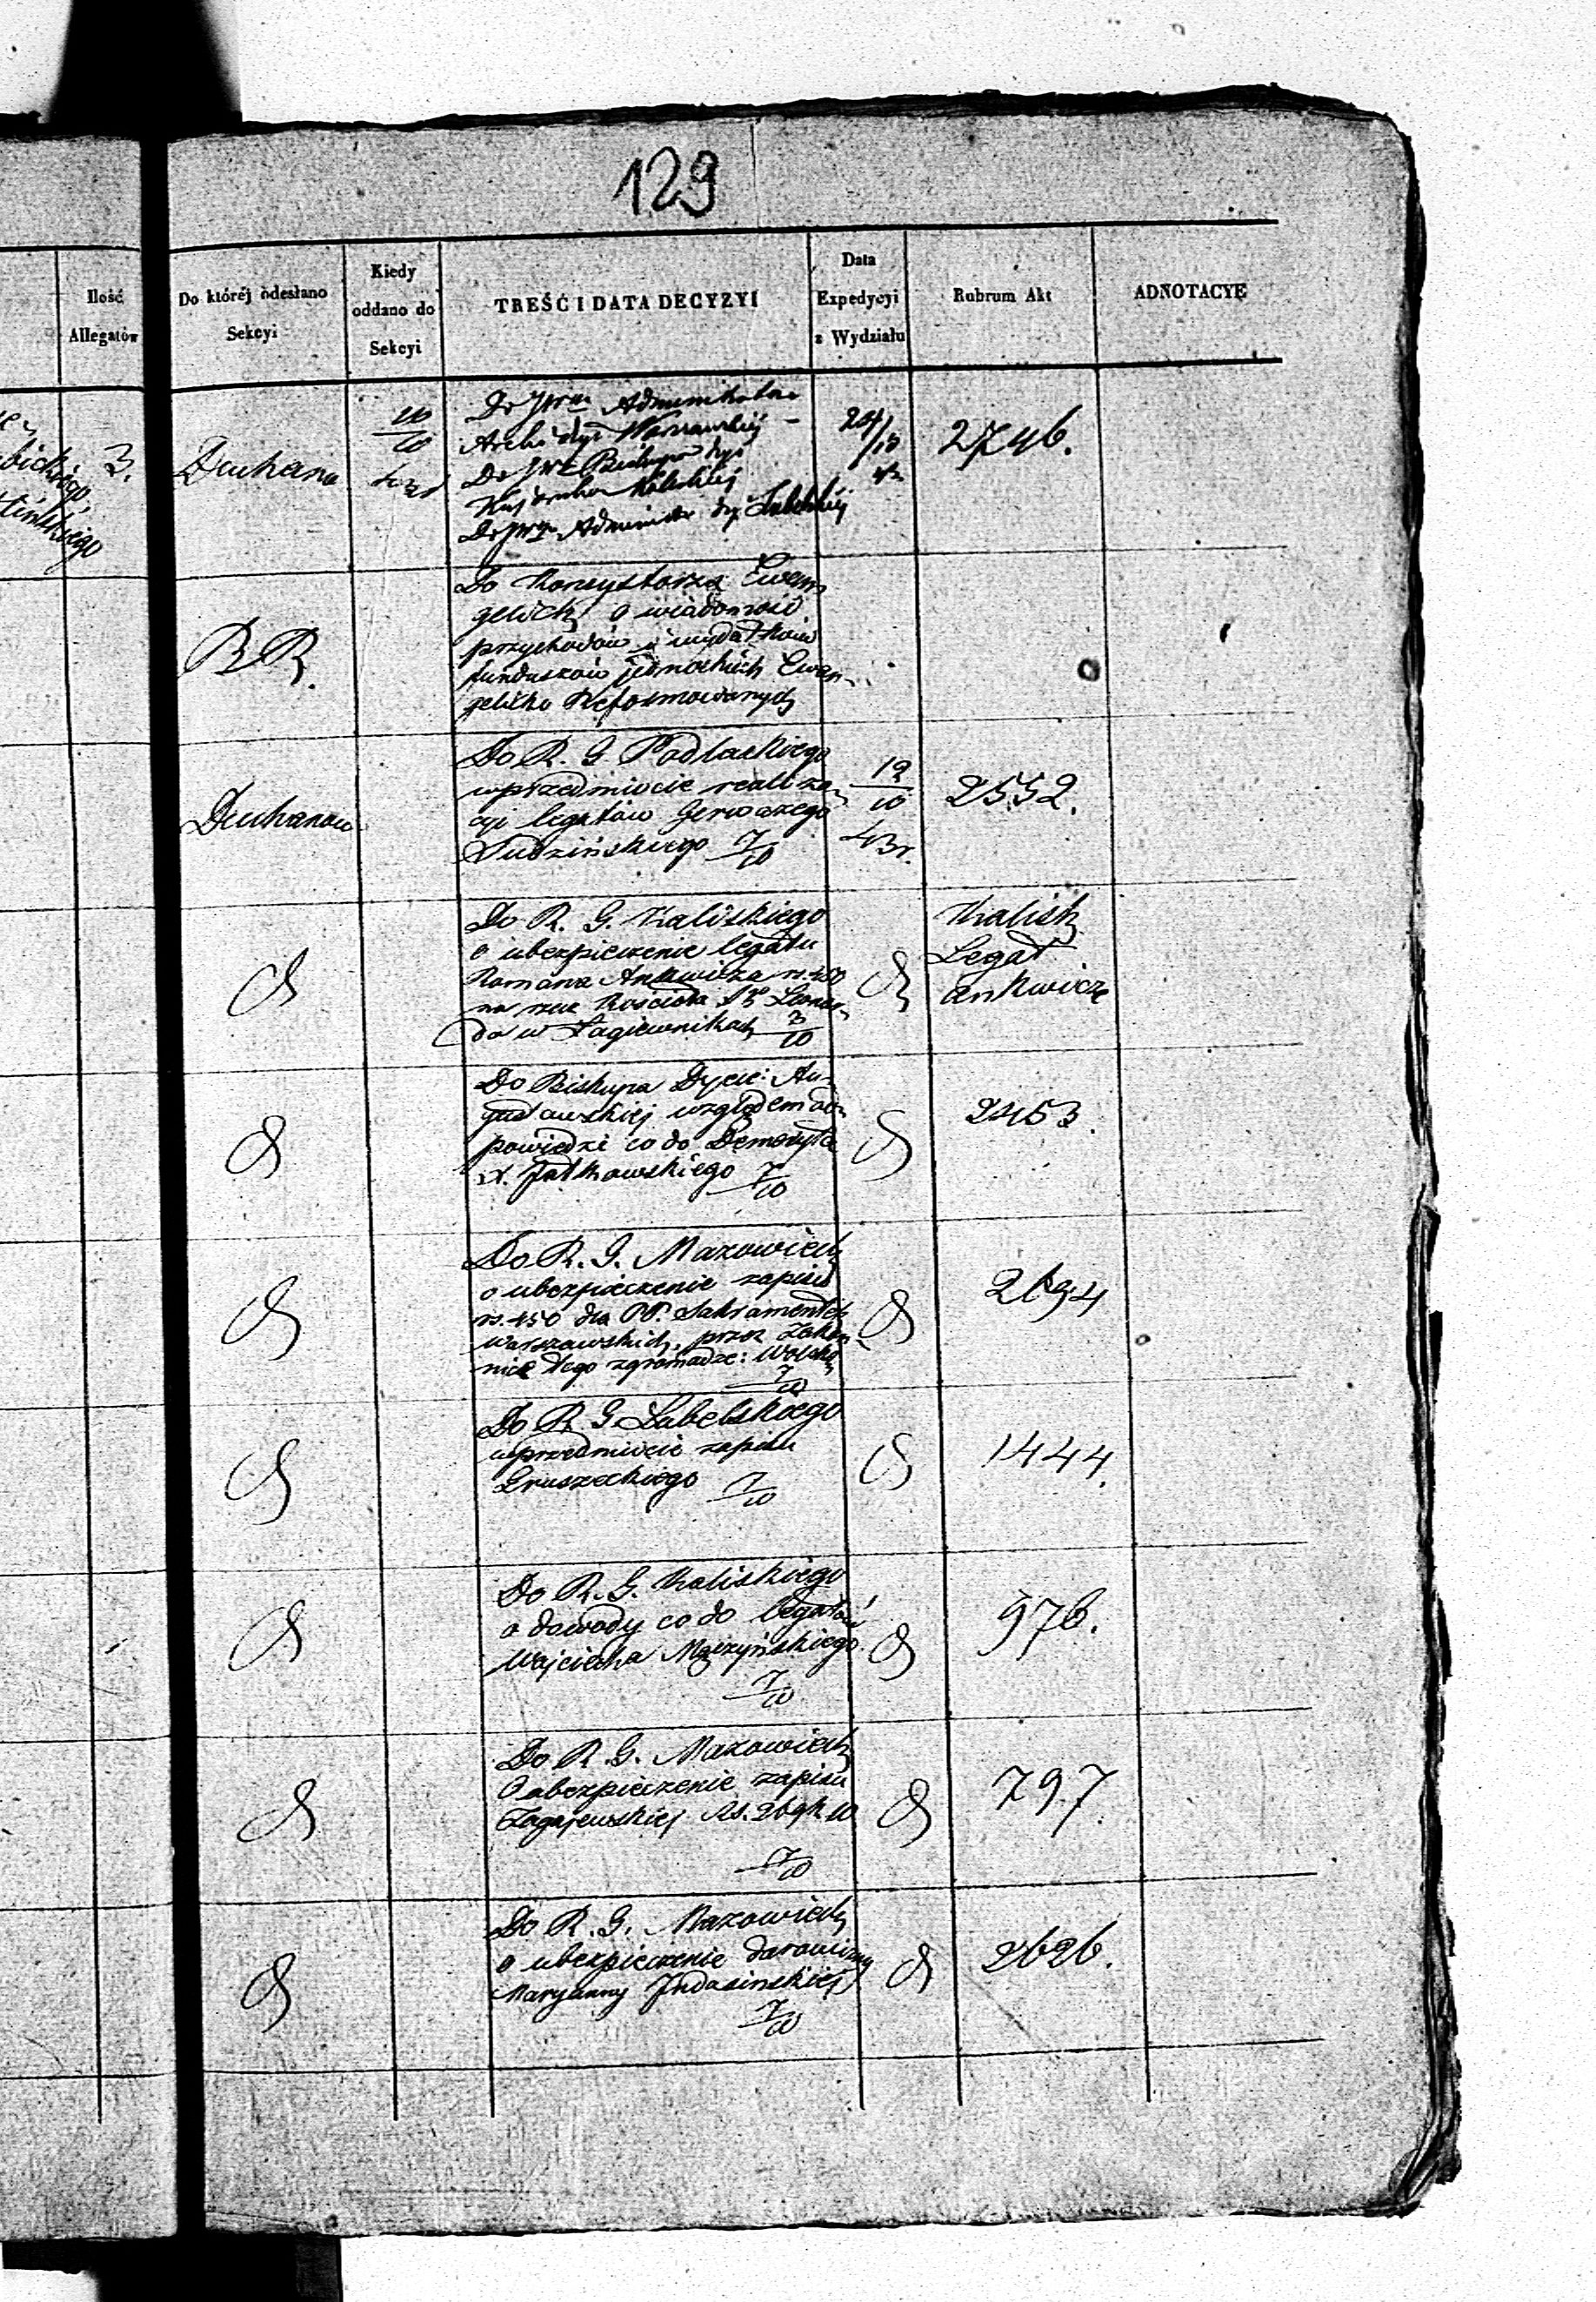 129
Ilość
Allegatów
Do któréj odesłano
Sekcyi
Kiedy
oddano do
Sekcyi
TREŚĆ I DATA DECYZYI
Data
Expedycyi
z Wydziału
Rubrum Akt
ADNOTACYE
3.
Duchana
10
10
43r
Archi dye Warszawskiej
Biskupa dyo
2746.
RR.
Do Konsystorza Ewan
gelick o wiadomość
przychodów i wydatków
funduszów jednockich Ewan
gelicko Reformowanych
Duchanow
Do R. G. Podlaskiego
wprzedmiocie realiza
cyi legatów Gerwazego
Tudzińskiego 7/10
12
10
43r.
2532.
Do R. G. Kaliskiego
o ubezpieczenie legatu
Romana Ankwicza rs. 450
na rzecz Kościoła Sgo Leonar
da w Łagiewnikach 7/10
Kalisk
Legat
Ankwicza
Do Biskupa Dyec: Au
gustowskiej względem od
powiedzi co do Demeryta
X. Jatkowskiego 7/10
2453.
Do R. G. Mazowieck
o ubezpieczenie zapisu
rs. 450 dla PP. Sakramentek
Warszawskich, przez Zakon
nicę tego zgromadze: Wolską
7/10
2694
Do R. G. Lubelskiego
wprzedmiocie zapisu
Gruszeckiego 7/10
1444.
Do R. G. Kaliskiego
o dowody co do legatów
Wojciecha Mączyńskiego
7/10
976.
Do R. G. Mazowieck
O ubezpieczenie zapisu
Zagajewskiej Rs. 269 k 10
7/10
797.
Do R. G. Mazowieck
o ubezpieczenie darowizny
Maryanny Judasinskiej
7/10
2626.